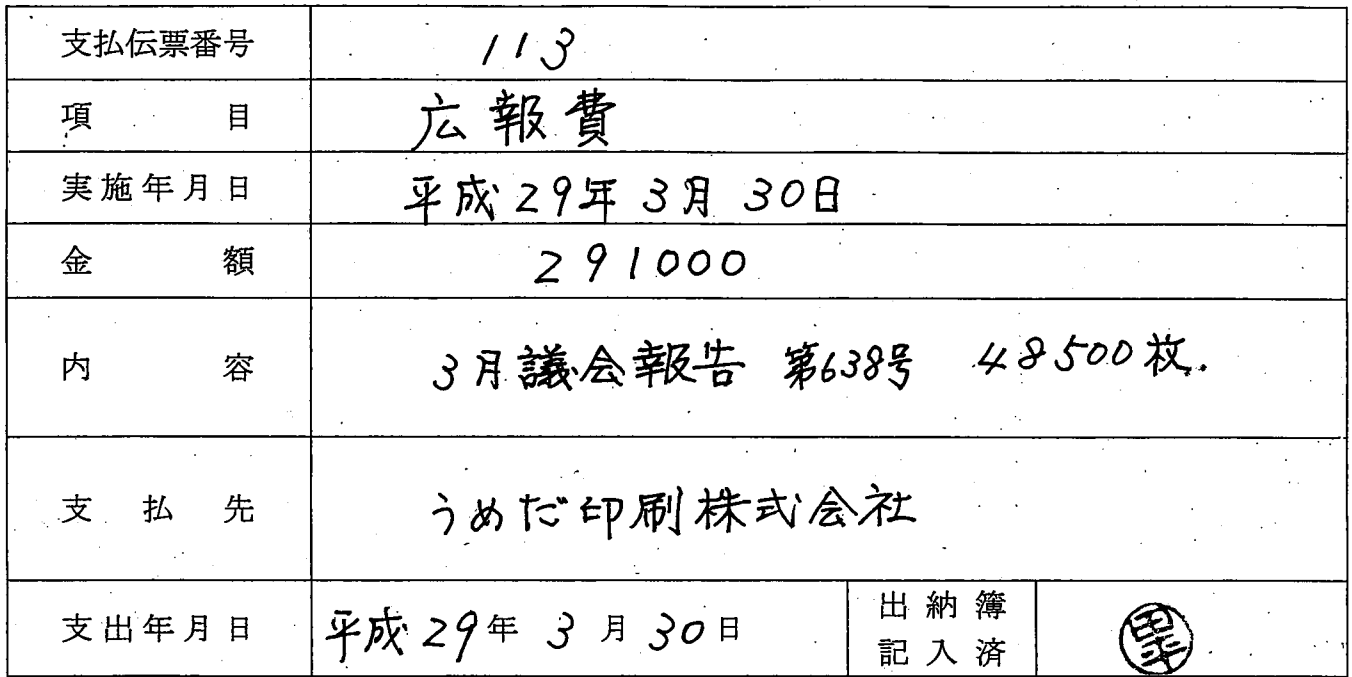 支払伝票番号 113
項目 広報費
実施年月日 平成29年3月30日
金額 291000
内容 3月議会報告 第638号 48500枚.
支払先 うめだ印刷株式会社
支出年月日 平成29年3月30日 出納簿
記入済